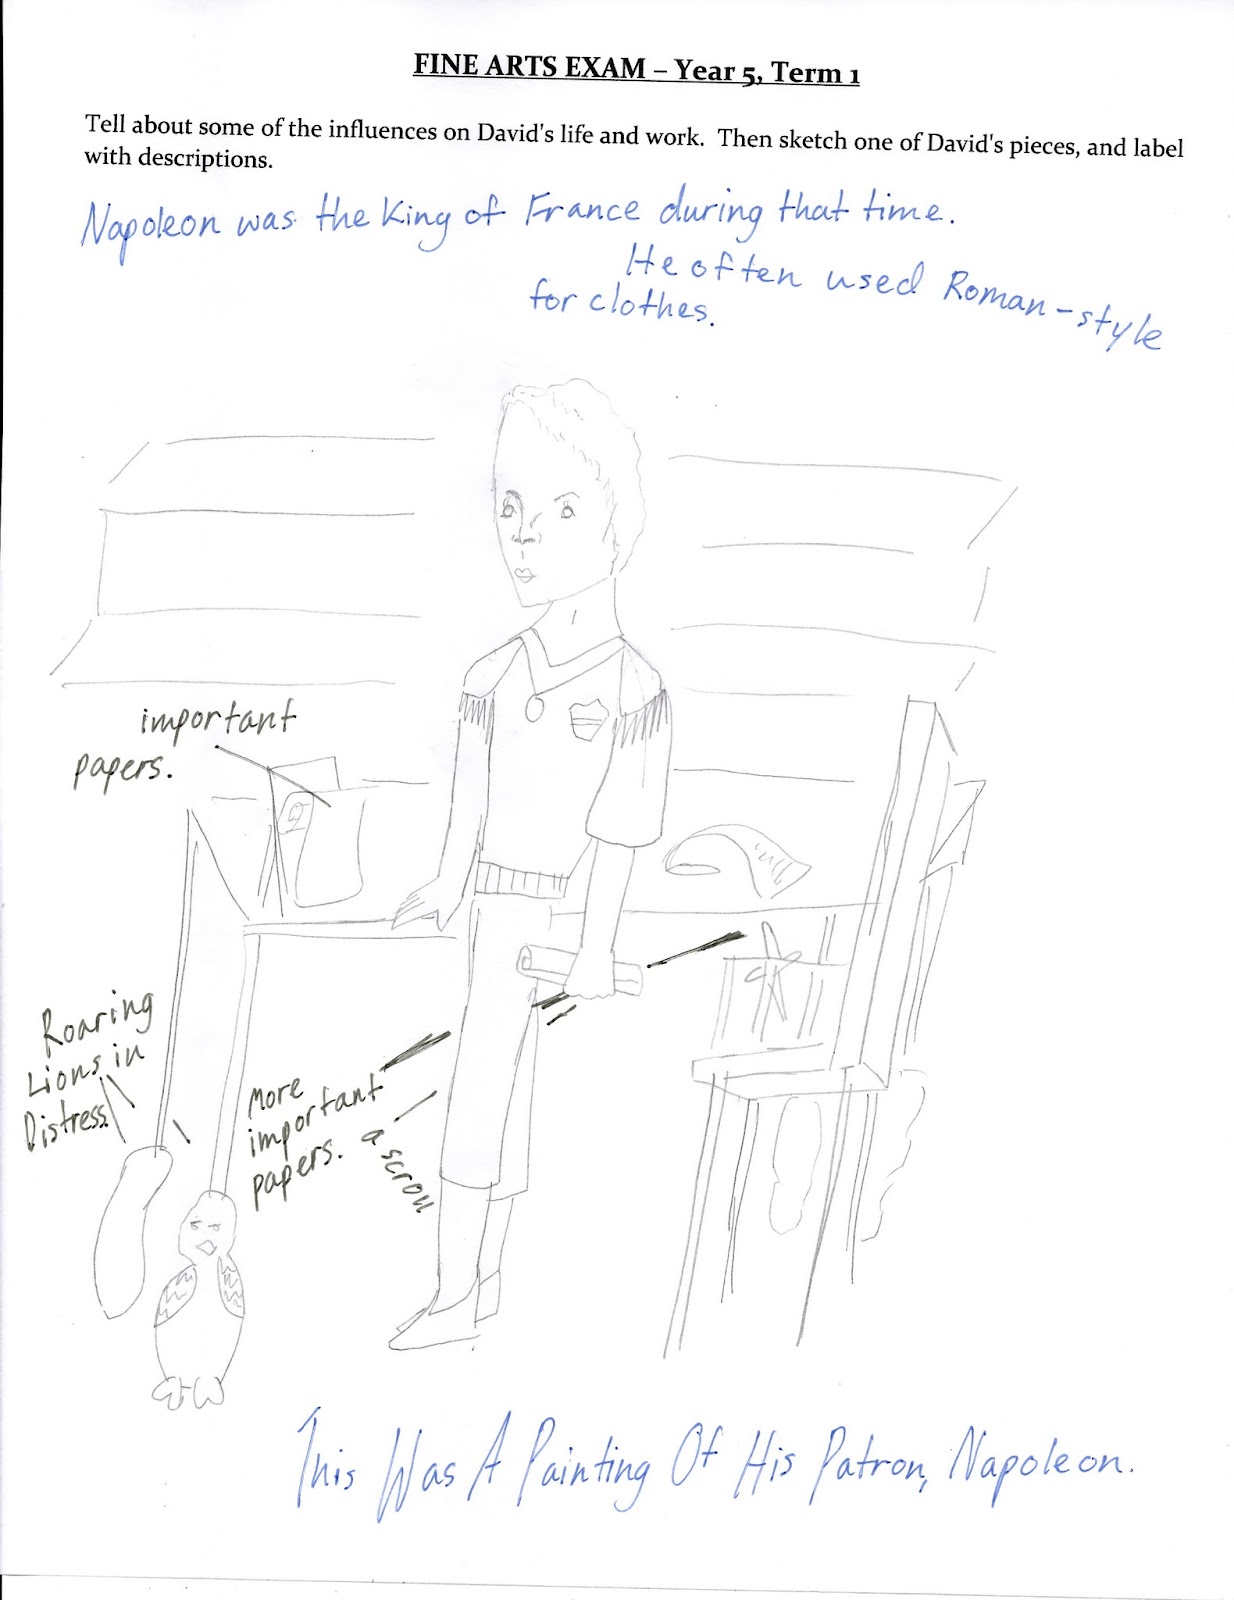 FINE ARTS EXAM – Year 5, Term 1
Tell about some of the influences on David's life and work.  Then sketch one of David's pieces, and label
with descriptions.
Napoleon was the King of France during that time.
He often used Roman-style
for clothes.
important
papers.
Roaring
Lions in
Distress.
More
important
papers.
a scroll
This Was A Painting Of His Patron, Napoleon.